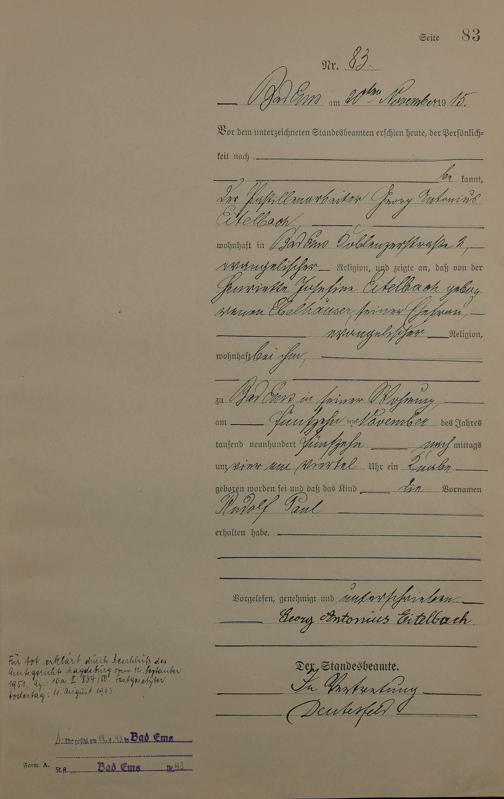 Seite 83
Nr. 83.
Bad Ems am 20ten November 1915.
Vor dem unterzeichneten Standesbeamten erschien heute, der Persönlich-
keit nach
be kannt,
der Pastillenarbeiter Georg Antonius
Eitelbach,
wohnhaft in Bad Ems Coblenzerstraße 2,
evangelischer Religion, und zeigte an, daß von der
Henriette Josefine Eitelbach gebo-
renen, seiner Ehefrau,
evangelischer Religion,
wohnhaft bei ihm,
zu Bad Ems in seiner Wohnung,
am fünfzehn November des Jahres
tausend neunhundert fünfzehn nach mittags
um vier ein viertel Uhr ein Knabe
geboren worden sei und daß das Kind die Vornamen
Rudolf Paul
erhalten habe.
Vorgelesen, genehmigt und unterschrieben
Georg Antonius Eitelbach.
Der Standesbeamte.
In Vertretung
Für tot erklärt durch Beschluß des
Amtsgerichts Magdeburg vom 12. September
1950, Festgesetzter
Todestag: 11. August 1943
Bad Ems
Form. A. St.A. Bad Ems Nr.